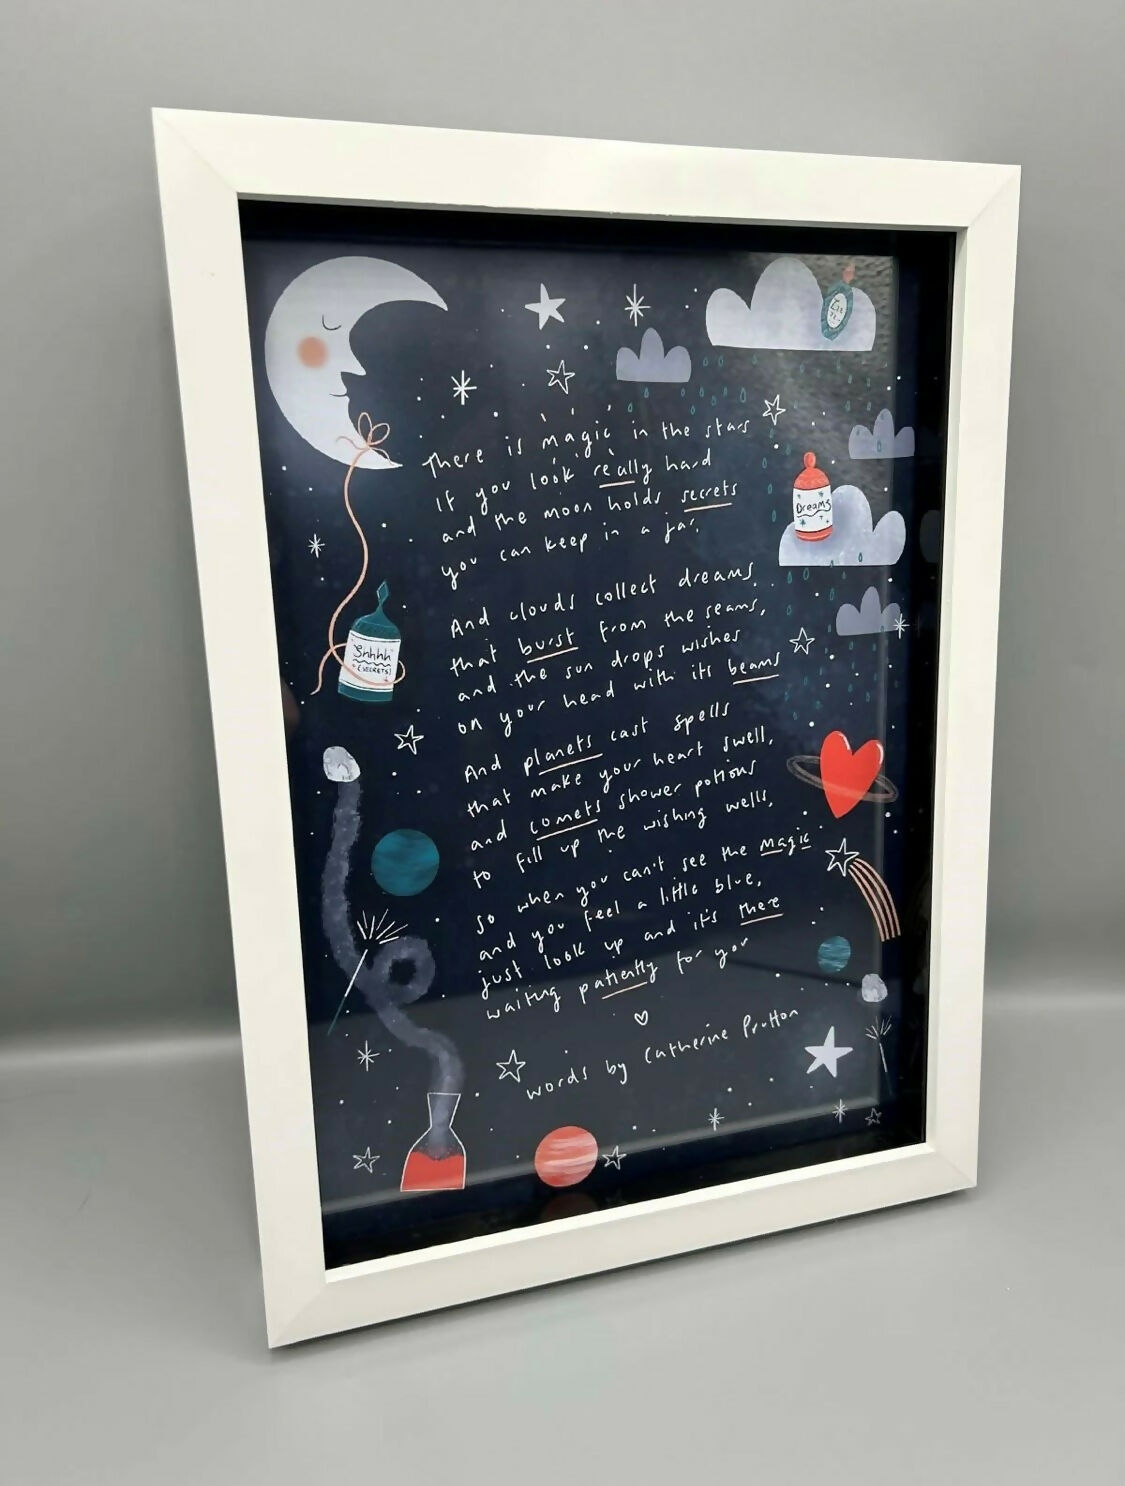 There is magic in the stars
if you look really hard
and the moon holds secrets
you can keep in a jar.
And clouds collect dreams
that burst from the seams,
and the sun drops wishes
on your head with its beams
And planets cast spells
that make your heart swell,
and comets shower potions
to fill up the wishing wells,
so when you can't see the magic
and you feel a little blue,
just look up and it's there
waiting patiently for you
words by Catherine Prutton
Shhhh
(SECRETS)
Dreams